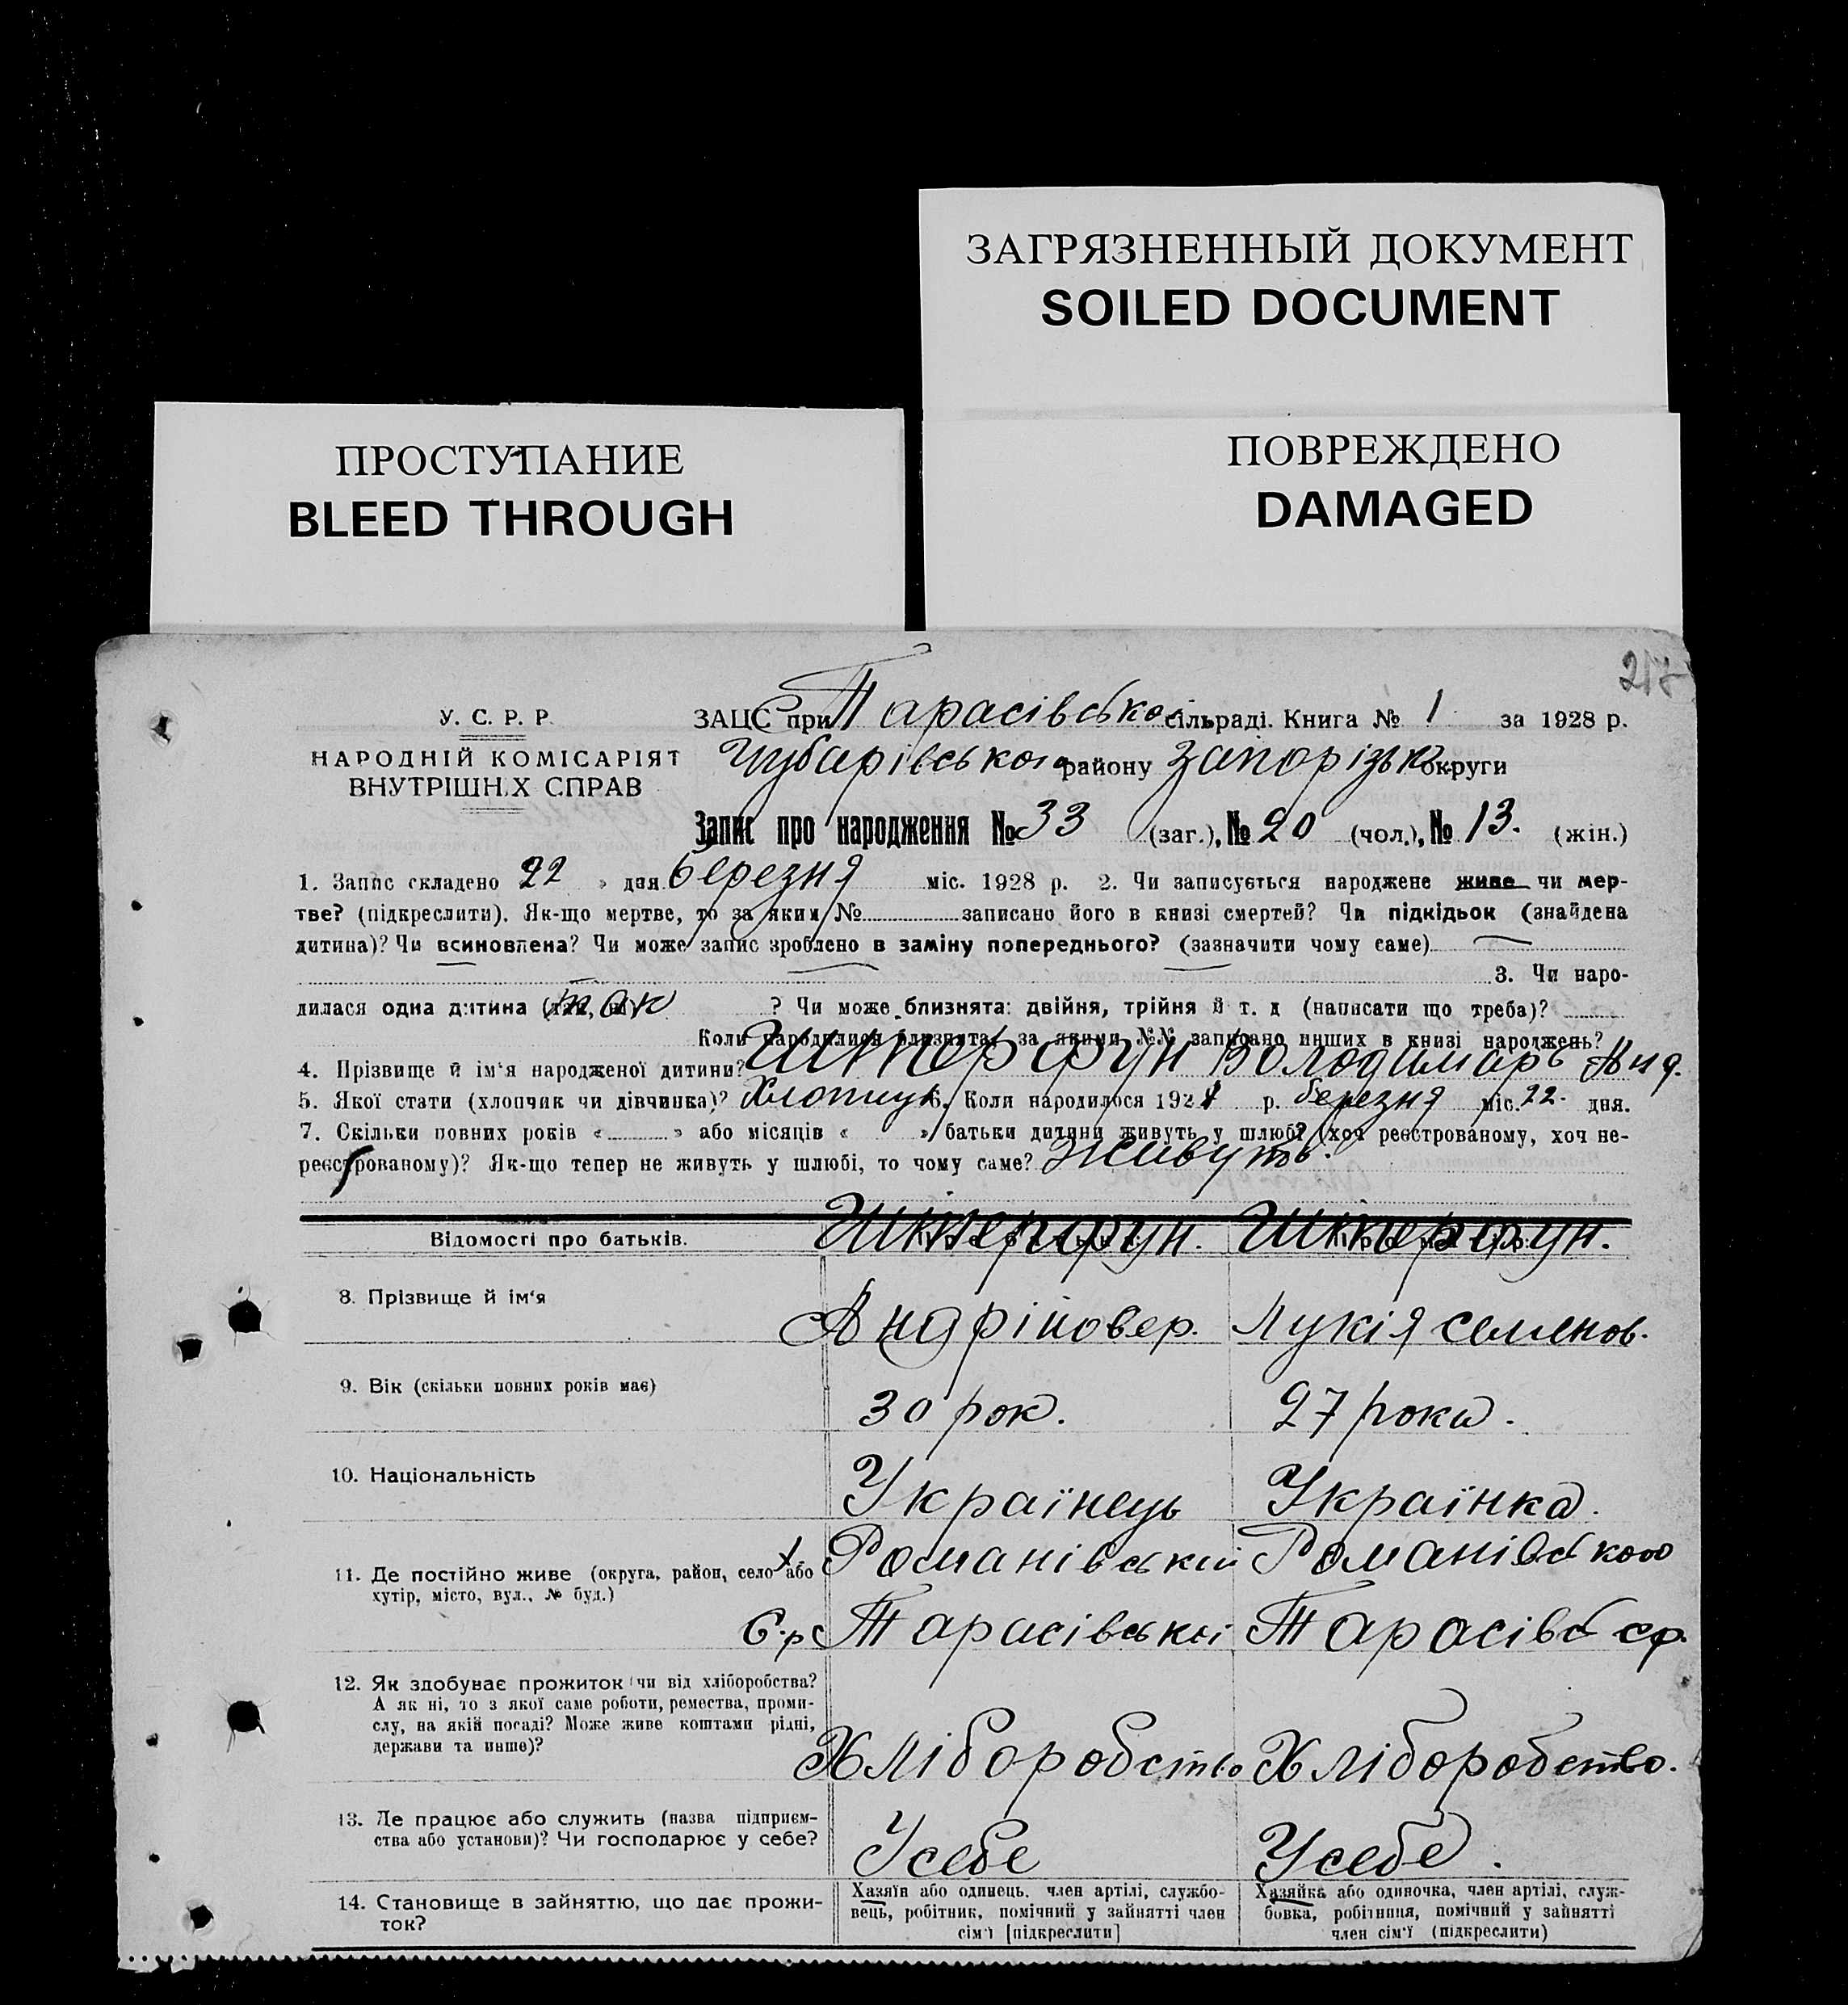 ЗАГРЯЗНЕННЫЙ ДОКУМЕНТ
SOILED DOCUMENT
ПРОСТУПАНИЕ
BLEED THROUGH
ПОВРЕЖДЕНО
DAMAGED
У. С. Р. Р.
НАРОДНІЙ КОМІСАРІЯТ
ВНУТРІШНІХ СПРАВ
ЗАЦС при Тарасівською сільраді. Книга № 1 за 1928 р.
Чубарівського району Запорізьк округи
Запис про народження № 33 (заг.), № 20 (чол.), № 13. (жін.)
1. Запис складено 22 » дня березня міс. 1928 р. 2. Чи записується народжене живе чи мер-
тве? (підкреслити). Як-що мертве, то за яким № записано його в книзі смертей? Чи підкідьок (знайдена
дитина)? Чи всиновлена? Чи може запис зроблено в заміну попереднього? (зазначити чому саме)
3. Чи наро-
дилася одна дитина (так, ні) так ? Чи може близнята: двійня, трійня й т. д (написати що треба)?
Коли народилися близнята, за якими №№ записано инших в книзі народжень?
4. Прізвище й ім'я народженої дитини? Володимарь
5. Якої статі (хлопчик чи дівчинка)? Хлопчик 6. Коли народилося 1928 р. березня міс. 22 дня.
7. Скільки повних років « » або місяців « » батьки дитини живуть у шлюбі (хоч реєстрованому, хоч не-
реєстрованому)? Як-що тепер не живуть у шлюбі, то чому саме? Живуть.
Відомості про батьків.
8. Прізвище й ім'я
Лукія Семенов.
9. Вік (скільки повних років має)
30 рок. 27 роки.
10. Національність
Українець Українка.
11. Де постійно живе (округа, район, село або
хутір, місто, вул., № буд.)
Романівській Романівською
С.р Тарасівської Тарасівс ср.
12. Як здобуває прожиток (чи від хліборобства?
А як ні, то з якої саме роботи, ремества, проми-
слу, на якій посаді? Може живе коштами рідні,
держави та инше)?
Хліборобство Хліборобство.
13. Де працює або служить (назва підприєм-
ства або установи)? Чи господарює у себе?
Усебе Усебе.
14. Становище в зайняттю, що дає прожи-
ток?
Хазяїн або одинець. член артілі, службо-
вець, робітник, помічний у зайнятті член
сім'ї [підкреслити]
Хазяйка або одиночка, член артілі, служ-
бовка, робітниця, помічний у зайнятті
член сім'ї (підкреслити)